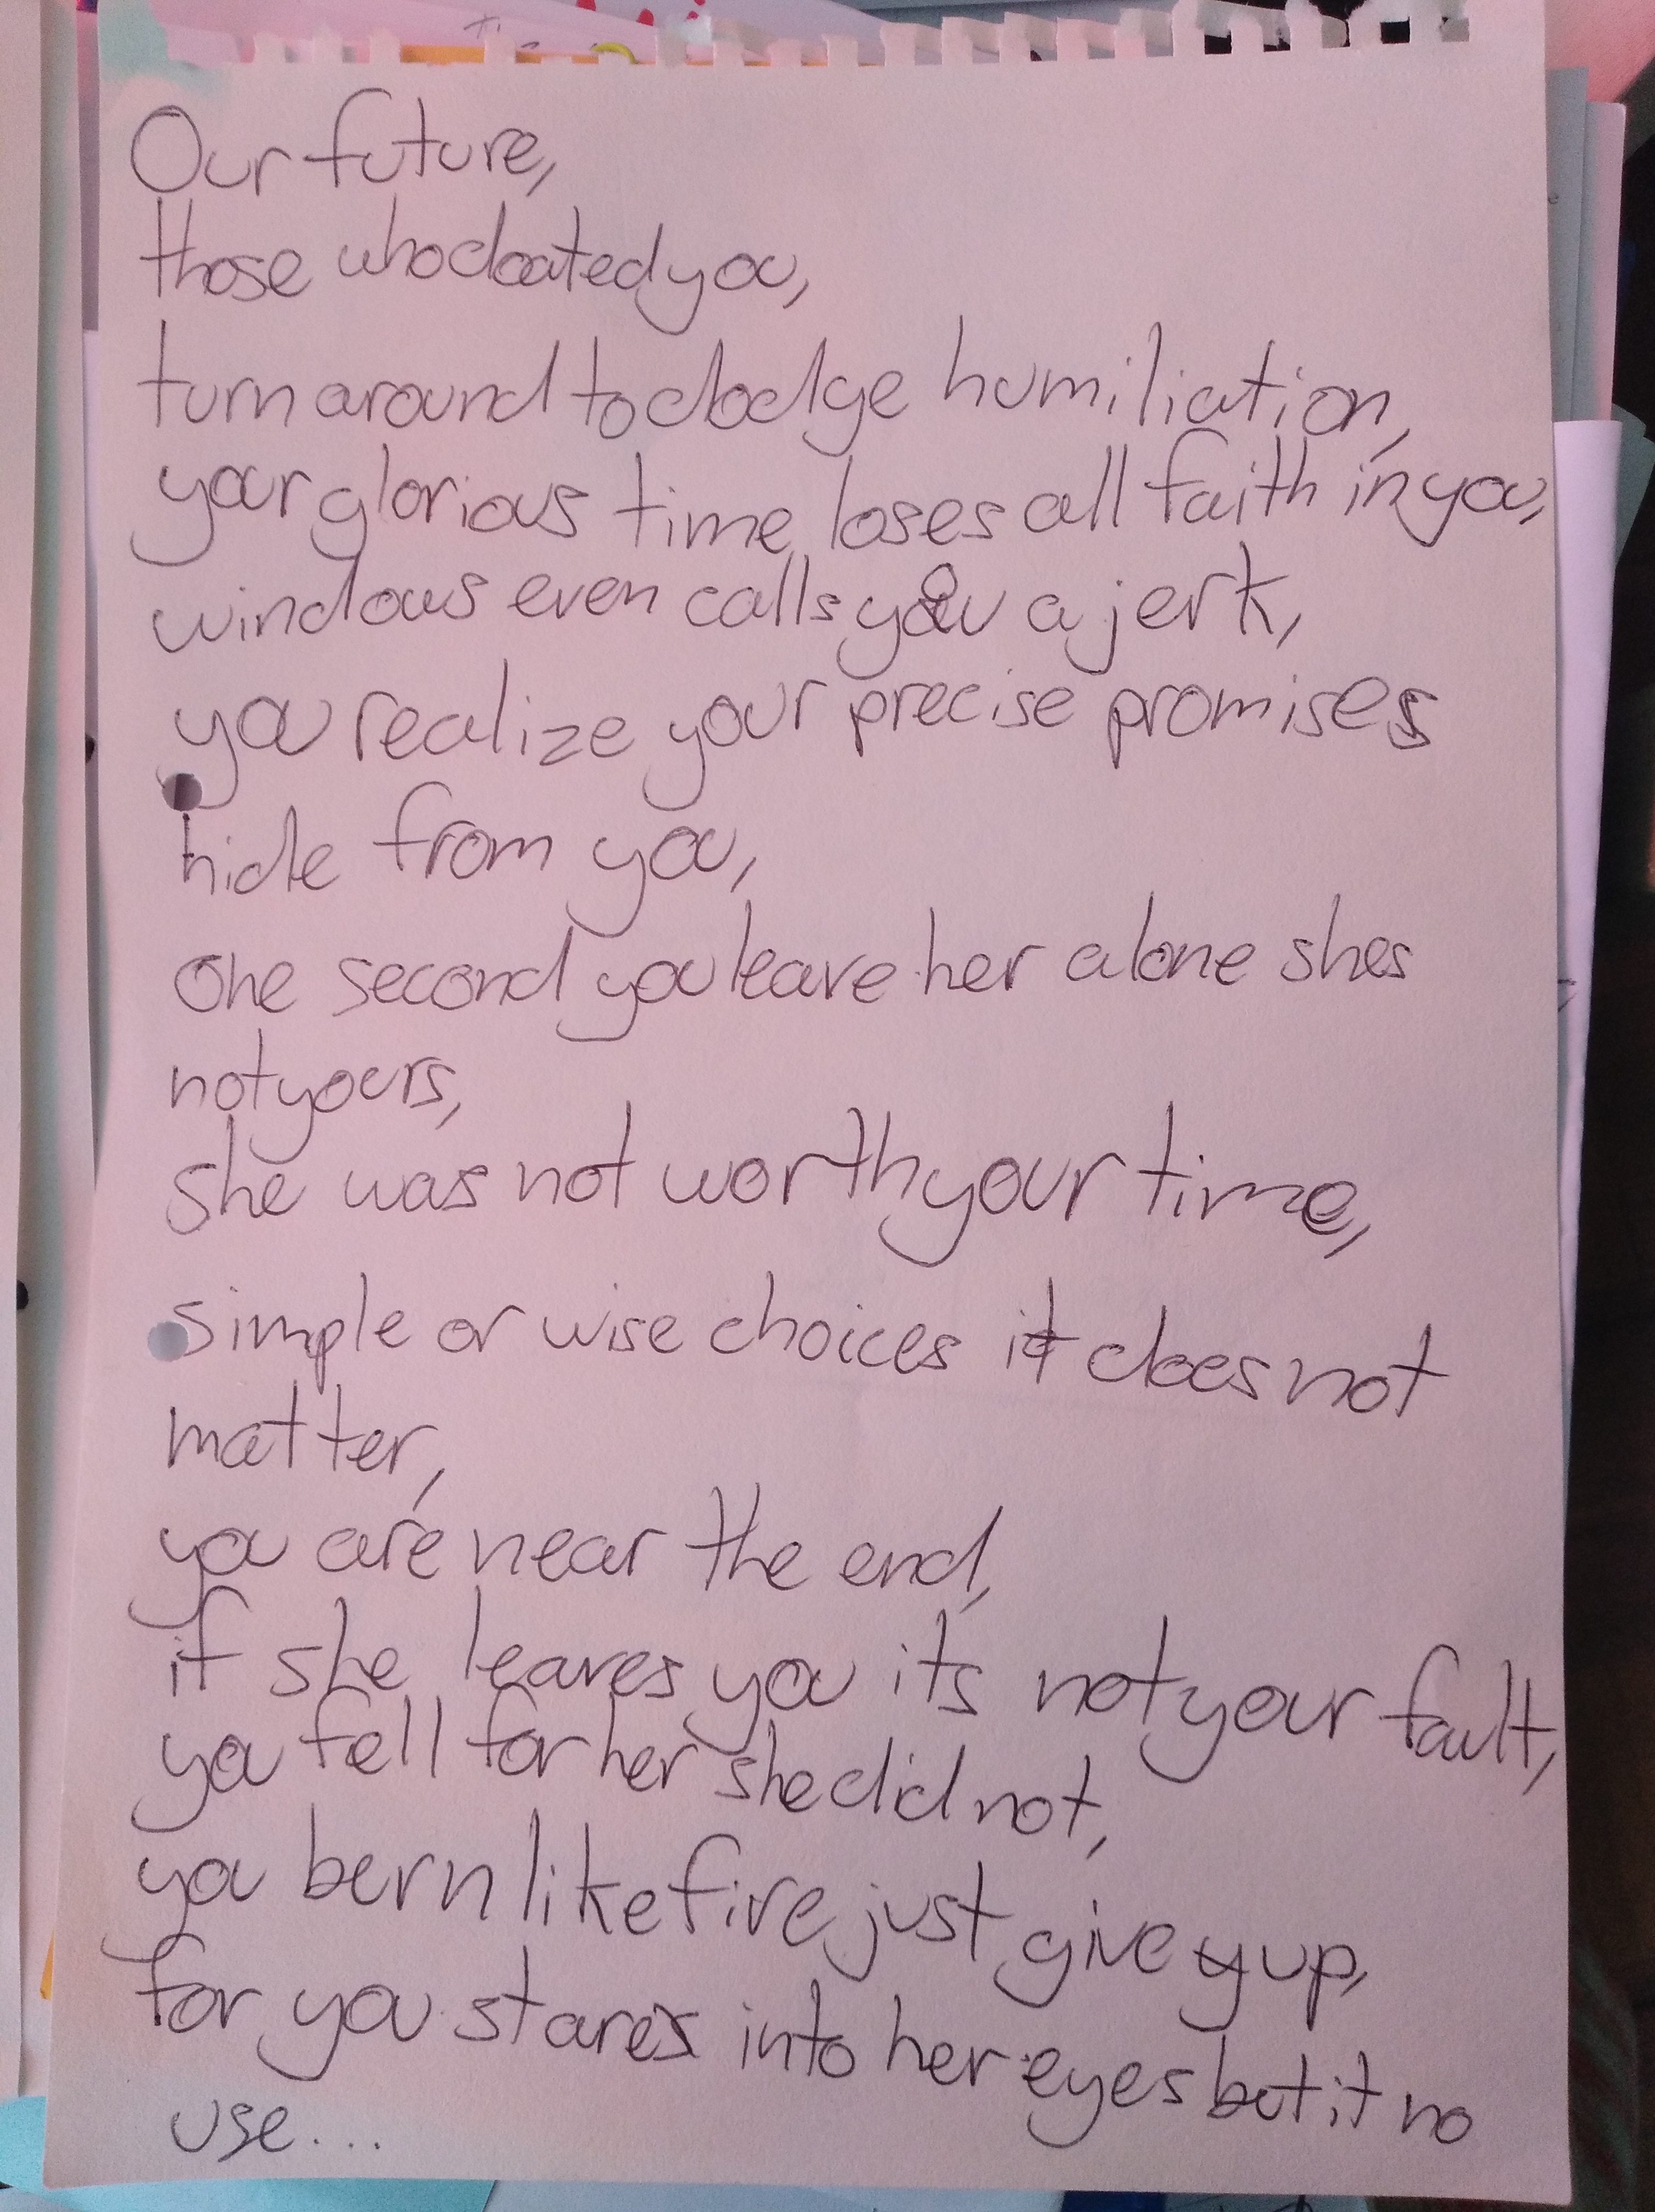 Our future,
those who doated you,
turn around to dodge humiliation,
your glorious time loses all faith in you,
windows even calls you a jerk,
you realize your precise promises
hide from you,
one second you leave her alone shes
not yours,
she was not worth your time,
simple or wise choices it does not
matter,
you are near the end,
if she leaves you its not your fault,
you fell for her she did not,
you bern like fire just give up,
for you stares into her eyes but it no
use...